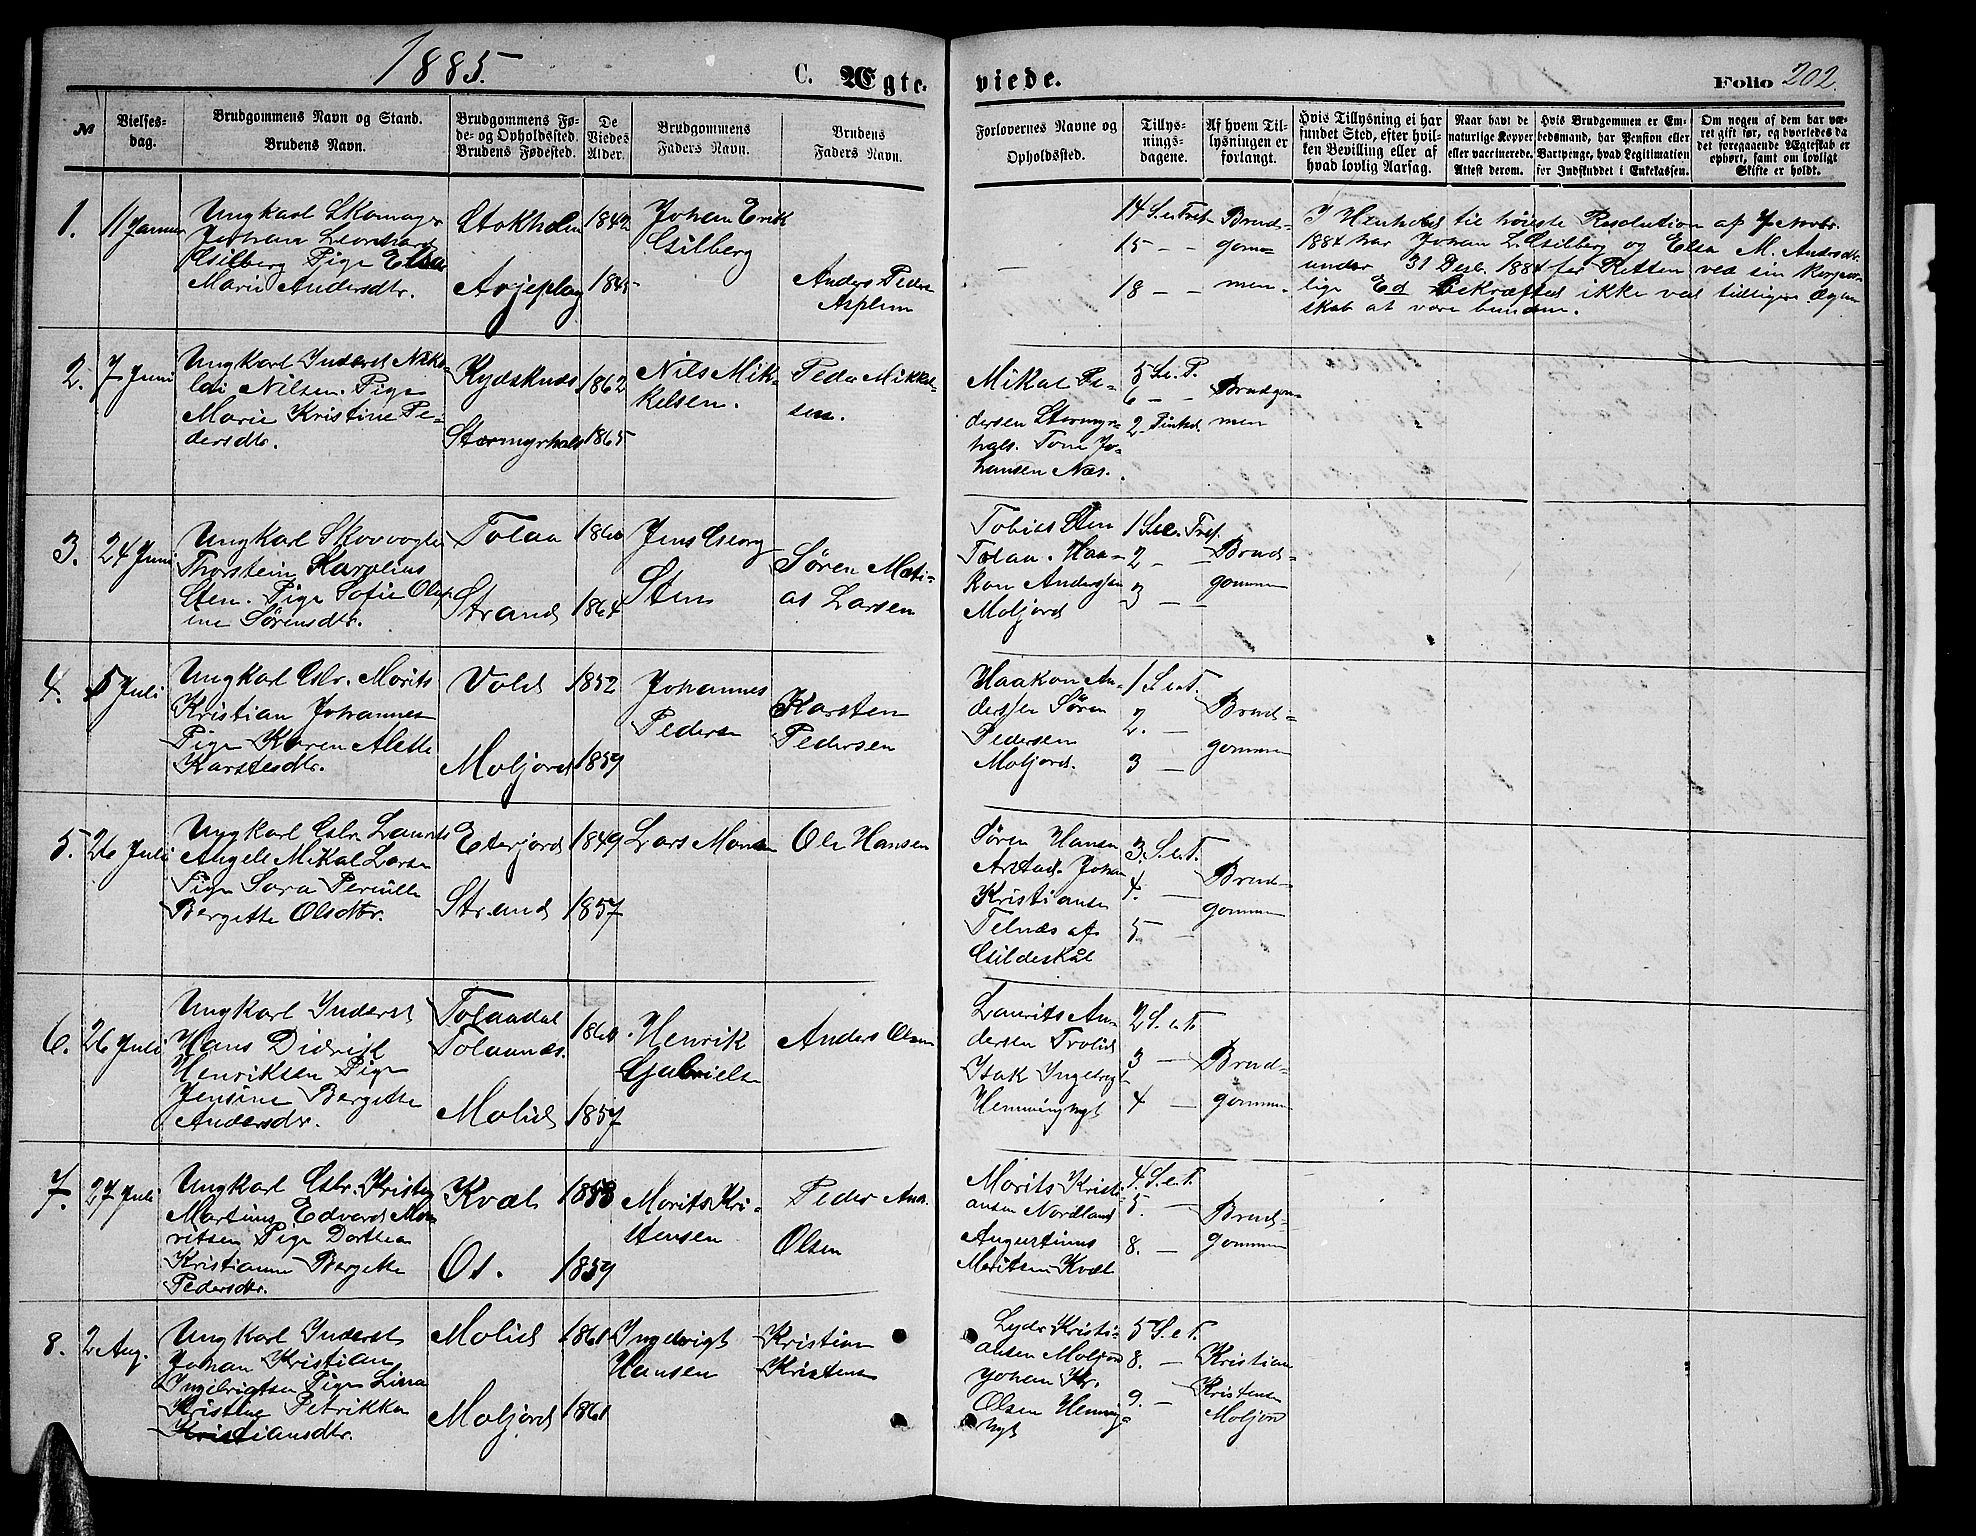 1885.
C. Ægte-
viede.
Folio 202.
№
Vielses-
dag.
Brudgommens Navn og Stand.
Brudens Navn.
Brudgommens Fø-
de- og Opholdssted.
Brudens Fødested.
De
Viedes
Alder.
Brudgommens
Faders Navn.
Brudens
Faders Navn.
Forlovernes Navne og
Opholdssted.
Tillys-
nings-
dagene.
Af hvem Til-
lysningen er
forlangt.
Hvis Tillysning ei har
fundet Sted, efter hvil-
ken Bevilling eller af
hvad lovlig Aarsag.
Naar havt de
naturlige Kopper
eller vaccinerede.
Attest derom.
Hvis Brudgommen er Em-
bedsmand, har Pension eller
Vartpenge, hvad Legitimation
for Indskuddet i Enkekassen.
Om nogen af dem har væ-
ret gift før, og hvorledes da
det foregaaende Ægteskab er
ophørt, samt om lovligt
Skifte er holdt.
1.
11 Januar
Ungkarl Skomager
Johan Leonhard
Gsilberg Pige Elsa
Marie Andersdtr.
Stokholm
Arjeplog
1842
1845
Johan Erik
Gsilberg
Anders Peders
Asplun
14 S. e. Tref.
15 — —
18 — —
Brud-
gom-
men-
I Henhold til høieste Resolution af 7 Novbr.
1884 har Johan L. Gsilberg og Elsa M. Andersdtr.
under 31 Desb. 1884 for Retten ved sin korpor-
lige Ed bekræftet ikke ved tidligere Ægte-
skab at være bunden.
2.
7 Juni
Ungkarl Inderst Niko-
lai Nilsen. Pige
Marie Kristine Pe-
dersdtr.
Kydsknds
Stormyrhals
1862
1865
Nils Mik-
kelsen.
Peder Mikkel-
sen.
Mikal Pe-
dersen Stormyr-
hals. Tone Jo-
hansen Næs.
5 S. e. P.
6 — —
2 Pintsd.
Brudgom-
men
3.
24 Juni
Ungkarl Skovvogter
Thorstein Karolius
Sten. Pige Sofie Oli-
ine Sørensdtr.
Tolaa
Strand
1860
1864
Jens Georg
Sten
Søren Mati-
as Larsen
Tobias Sten
Tolaa. Haa-
kon Anderssen
Moljord
1 S. e. Tref.
2 — —
3 — —
Brud-
gommen
4.
5 Juli
Ungkarl Gbr. Morits
Kristian Johannes
Pige Karen Alette
Karstesdtr.
Vold
Moljord
1852
1859
Johannes
Pedersen
Karsten
Pedersen
Haakon An-
derssen Søren
Pedersen
Moljord.
1 S. e. T.
2. —
3 —
Brud-
gommen
5.
26 Juli
Ungkarl Gbr. Laurits
Angell Mikal Larsen
Pige Sara Pernille
Bergette Olsdtr.
Eterjord
Strand
1849
1857
Lars Monsen
Ole Hansen
Søren Hansen
Arstad. Johan
Kristiansen
Telnæs af
Gildeskål
3. S. e. T.
4. —
5. —
Brud-
gommen
6.
26 Juli
Ungkarl Inderst
Hans Didrik
Henriksen Pige
Jensine Bergette
Andersdtr.
Tolaadal
Tolaanæs.
Molid
1860
1857
Henrik
Gabrielsen
Anders Olsen
Laurits An-
dersen Trolid
Isak Ingebrigt
Hemmingnyt
2 S. e. T.
3 —
4 —
Brud-
gommen
7.
27 Juli
Ungkarl Gbr. Kristen
Martinus Edvard Mo-
ritsen Pige Dorthea
Kristianne Bergette
Pedersdtr.
Kvæl
Os.
1853
1859
Morits Kri-
stensen
Peder And.
Olsen
Morits Kristi-
ansen Nordland
Augustinus
Moritsen Kvæl
4. S. e. T.
5. —
8. —
Brud-
gommen
8.
2 Aug.
Ungkarl Inderst
Johan Kristian
Ingebrigtsen Pige Lina
Kristine Petrikka
Kristiansdtr.
Molid
Moljord
1861
1861
Ingebrigt
Hansen
Kristian
Kristensen
Lyder Kristi-
ansen Moljord
Johan Kr.
Olsen Hemming
nyt
5 S. e. T.
8. —
9. —
Kristian
Kristensen
Moljord